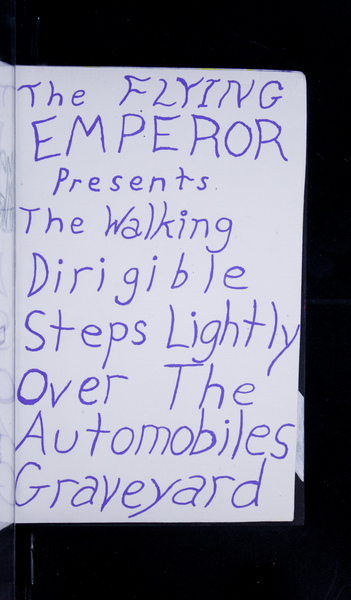 The FLYING
EMPEROR
Presents
The Walking
Dirigible
Steps Lightly
Over The
Automobiles
Graveyard